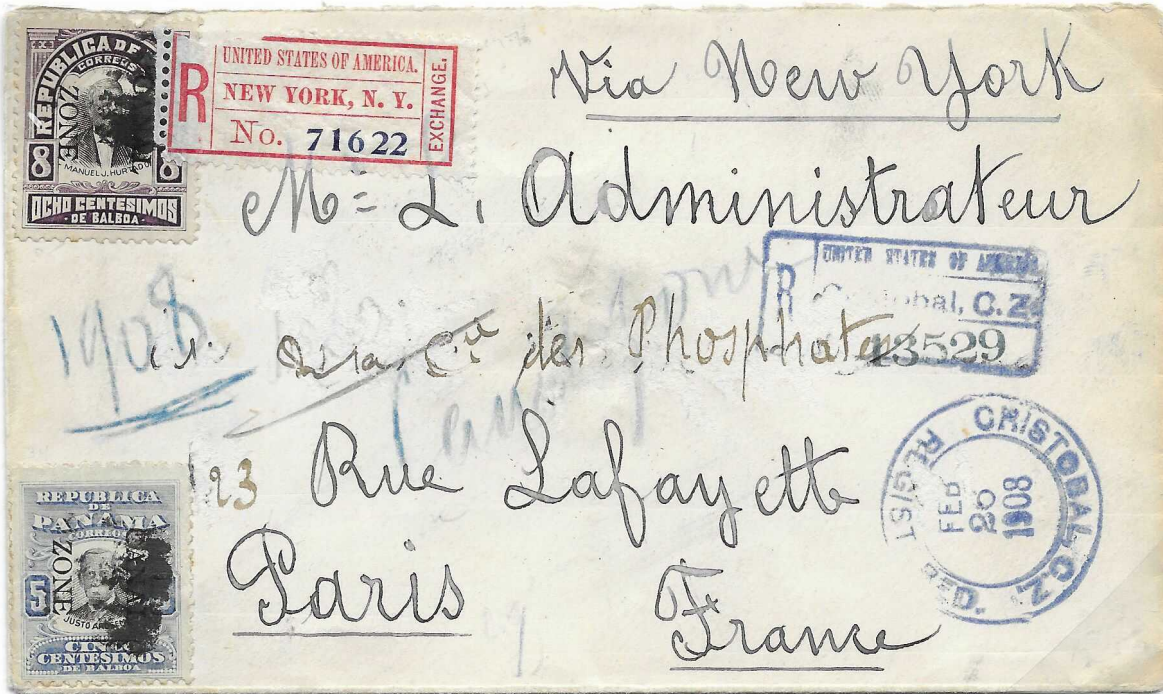 REPUBLICA DE
CORREOS
ZONE
MANUEL J. HURTADO
8 8
OCHO CENTESIMOS
DE BALBOA
R
UNITED STATES OF AMERICA.
NEW YORK, N. Y.
No. 71622
EXCHANGE.
Via New York
Mr L. Administrateur
UNITED STATES OF AMERICA
R
Cristobal, C.Z.
43529
1908
de la Cie des Phosphates
23 Rue Lafayette
Paris France
CRISTOBAL, C.Z.
FEB
26
1908
REGISTERED.
REPUBLICA
DE
PANAMA
CORREOS
ZONE
5
JUSTO
CINCO
CENTESIMOS
DE BALBOA